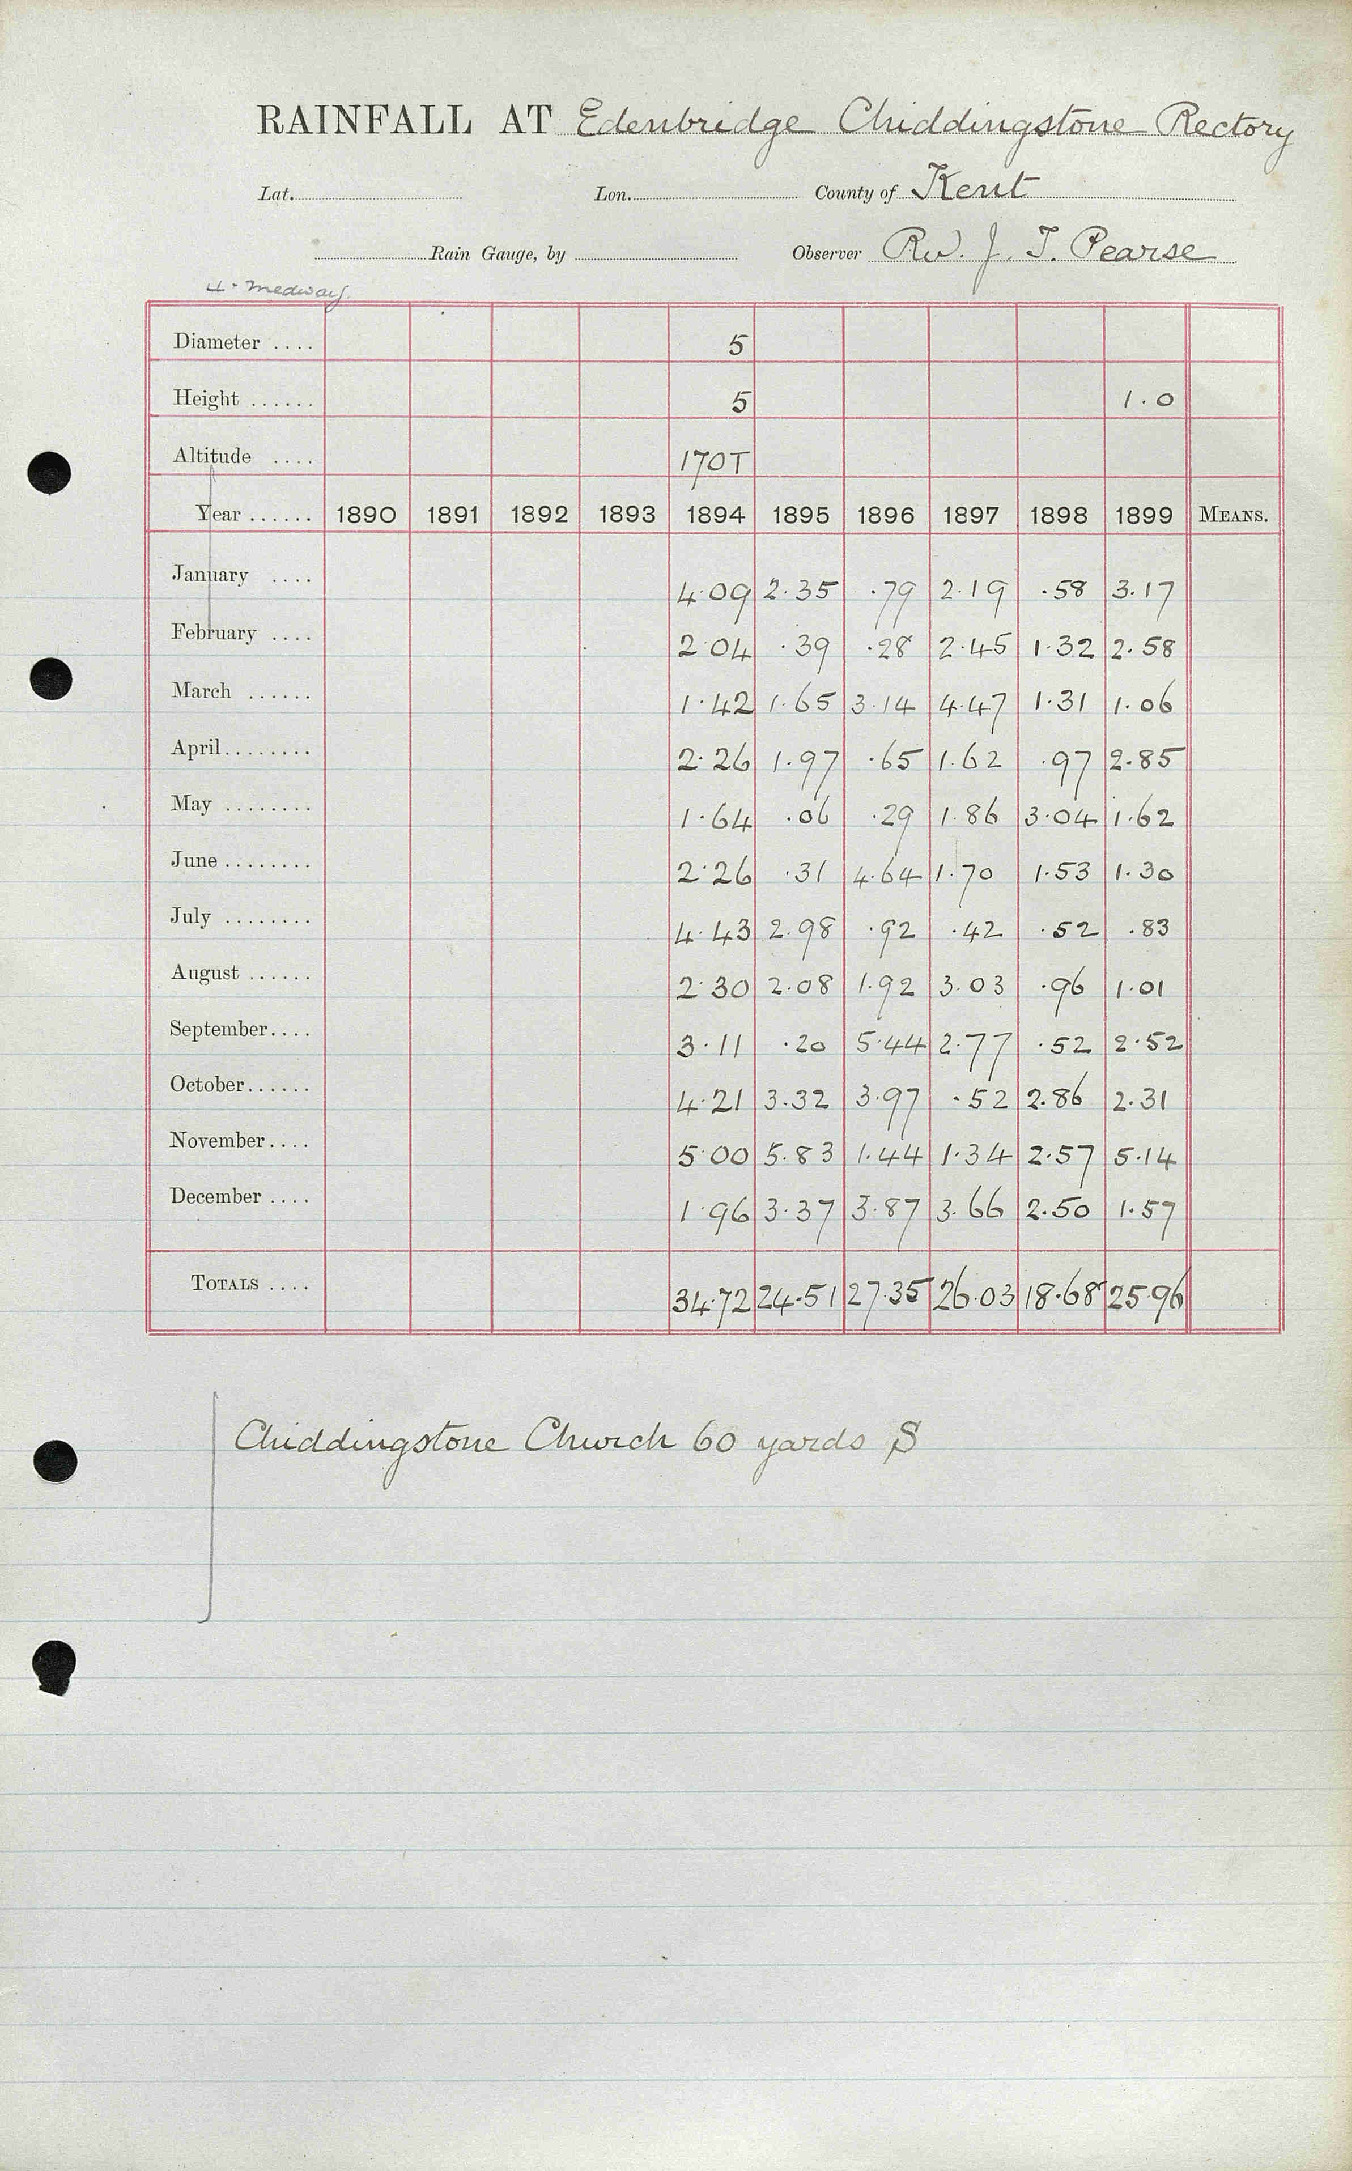 RAINFALL AT Edenbridge Chiddingstone Rectory
Lat. Lon. County of Kent
Rain Gauge, by Observer Rev. J. T. Pearse
4. Medway.
Diameter .... 5
Height ...... 5 1.0
Altitude .... 170T
Year ...... 1890 1891 1892 1893 1894 1895 1896 1897 1898 1899 MEANS.
January .... 4.09 2.35 .79 2.19 .58 3.17
February .... 2.04 .39 .28 2.45 1.32 2.58
March ...... 1.42 1.65 3.14 4.47 1.31 1.06
April........ 2.26 1.97 .65 1.62 .97 2.85
May ........ 1.64 .06 .29 1.86 3.04 1.62
June ........ 2.26 .31 4.64 1.70 1.53 1.30
July ........ 4.43 2.98 .92 .42 .52 .83
August ...... 2.30 2.08 1.92 3.03 .96 1.01
September.... 3.11 .20 5.44 2.77 .52 2.52
October...... 4.21 3.32 3.97 .52 2.86 2.31
November.... 5.00 5.83 1.44 1.34 2.57 5.14
December .... 1.96 3.37 3.87 3.66 2.50 1.57
TOTALS .... 34.72 24.51 27.35 26.03 18.68 25.96
Chiddingstone Church 60 yards S